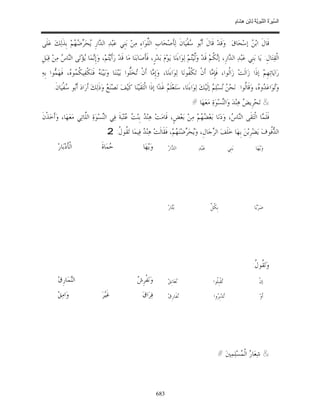 السيرة النبوية لابن هشام
قَالَ ابْنُ إسْحَاقَ: وَقَدْ قَالَ أَبُو سُفْيَانَ لِأَصْحَابِ اللِّوَاءِ مِنْ بَنِي عَبْدِ الدَّارِ يُحَرِّضُهُمْ بِذَلِكَ عَلَى
الْقِتَالِ: يَا بَنِي عَبْدِ الدَّارِ، إنَّكُمْ قَدْ وُلِّيتُمْ لِوَاءَنَا يَوْمَ بَدْرٍ، فَأَصَابَنَا مَا قَدْ رَأَيْتُمْ، وَإِنَّمَا يُؤْتَى النَّاسُ مِنْ قِبَلِ
رَايَاتِهِمْ إذَا زَالَتْ زَالُوا، فَإِمَّا أَنْ تَكْفُونَا لِوَاءَنَا، وَإِمَّا أَنْ تُخَلُّوا بَيْنَنَا وَبَيْنَهُ فَنَكْفِيكُمُوهُ، فَهَمُّوا بِهِ
وَتَوَاعَدُوهُ، وَقَالُوا: نَحْنُ نُسْلِمُ إلَيْكَ لِوَاءَنَا، سَتَعْلَمُ غَدًا إذَا الْتَقَيْنَا كَيْفَ نَصْنَعُ وَذَلِكَ أَرَادَ أَبُو سُفْيَانَ.
& تَحْرِيضُ هِنْدَ وَالنِّسْوَةِ مَعَهَا #
فَلَمَّا الْتَقَى النَّاسُ، وَدَنَا بَعْضُهُمْ مِنْ بَعْضٍ، قَامَتْ هِنْدُ بِنْتُ عُتْبَةَ فِي النِّسْوَةِ اللَّاتِي مَعَهَا، وَأَخَذْنَ
الدُّفُوفَ يَضْرِبْنَ بِهَا خَلْفَ الرِّجَالِ، وَيُحَرِّضْنَهُمْ، فَقَالَتْ هِنْدُ فِيمَا تَقُولُ: 2
وَيْهَا بَنِي عَبْدِ الدَّارْ وَيْهَا حُمَاةَ الْأَدْبَارْ
ضَرْبًا بِكُلِّ بَتَّارْ
وَتَقُولُ:
إنْ تُقْبِلُوا نُعَانِقْ وَنَفْرِشُ النَّمَارِقْ
أَوْ تُدْبِرُوا نُفَارِقْ فِرَاقَ غَيْرَ وَامِقْ
& شِعَارُ الْمُسْلِمِينَ #
683